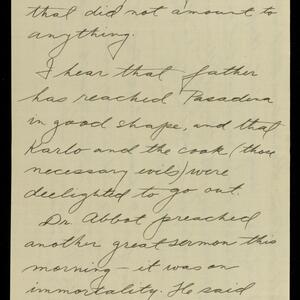 that did not amount to
anything.
I hear that father
has reached Pasadena
in good shape, and that
Karlo and the cook (those
necessary evils) were
deelighted to go out.
Dr. Abbot preached
another great sermon this
morning – it was on
immortality. He said